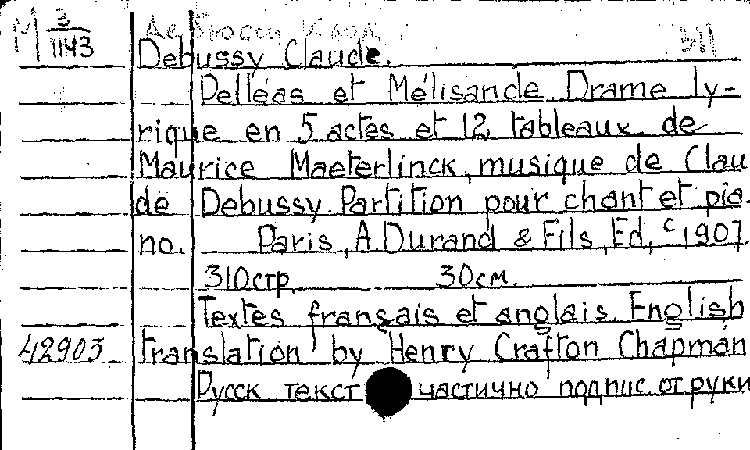 М 3/1143 Дебюсси Клод 311
Debussy Claude.
Pelléas et Mélisande Drame ly-
rique en 5 actes et 12 tableaux de
Maurice Maeterlinck, musique de Clau
de Debussy Partition pour chant et pia-
no. Paris, A. Durand & Fils, Ed, c 1907.
310 стр. 30 см.
Textes français et anglais English
42903 translation by Henry Crafton Chapman
Русск текст частично подпис. от руки